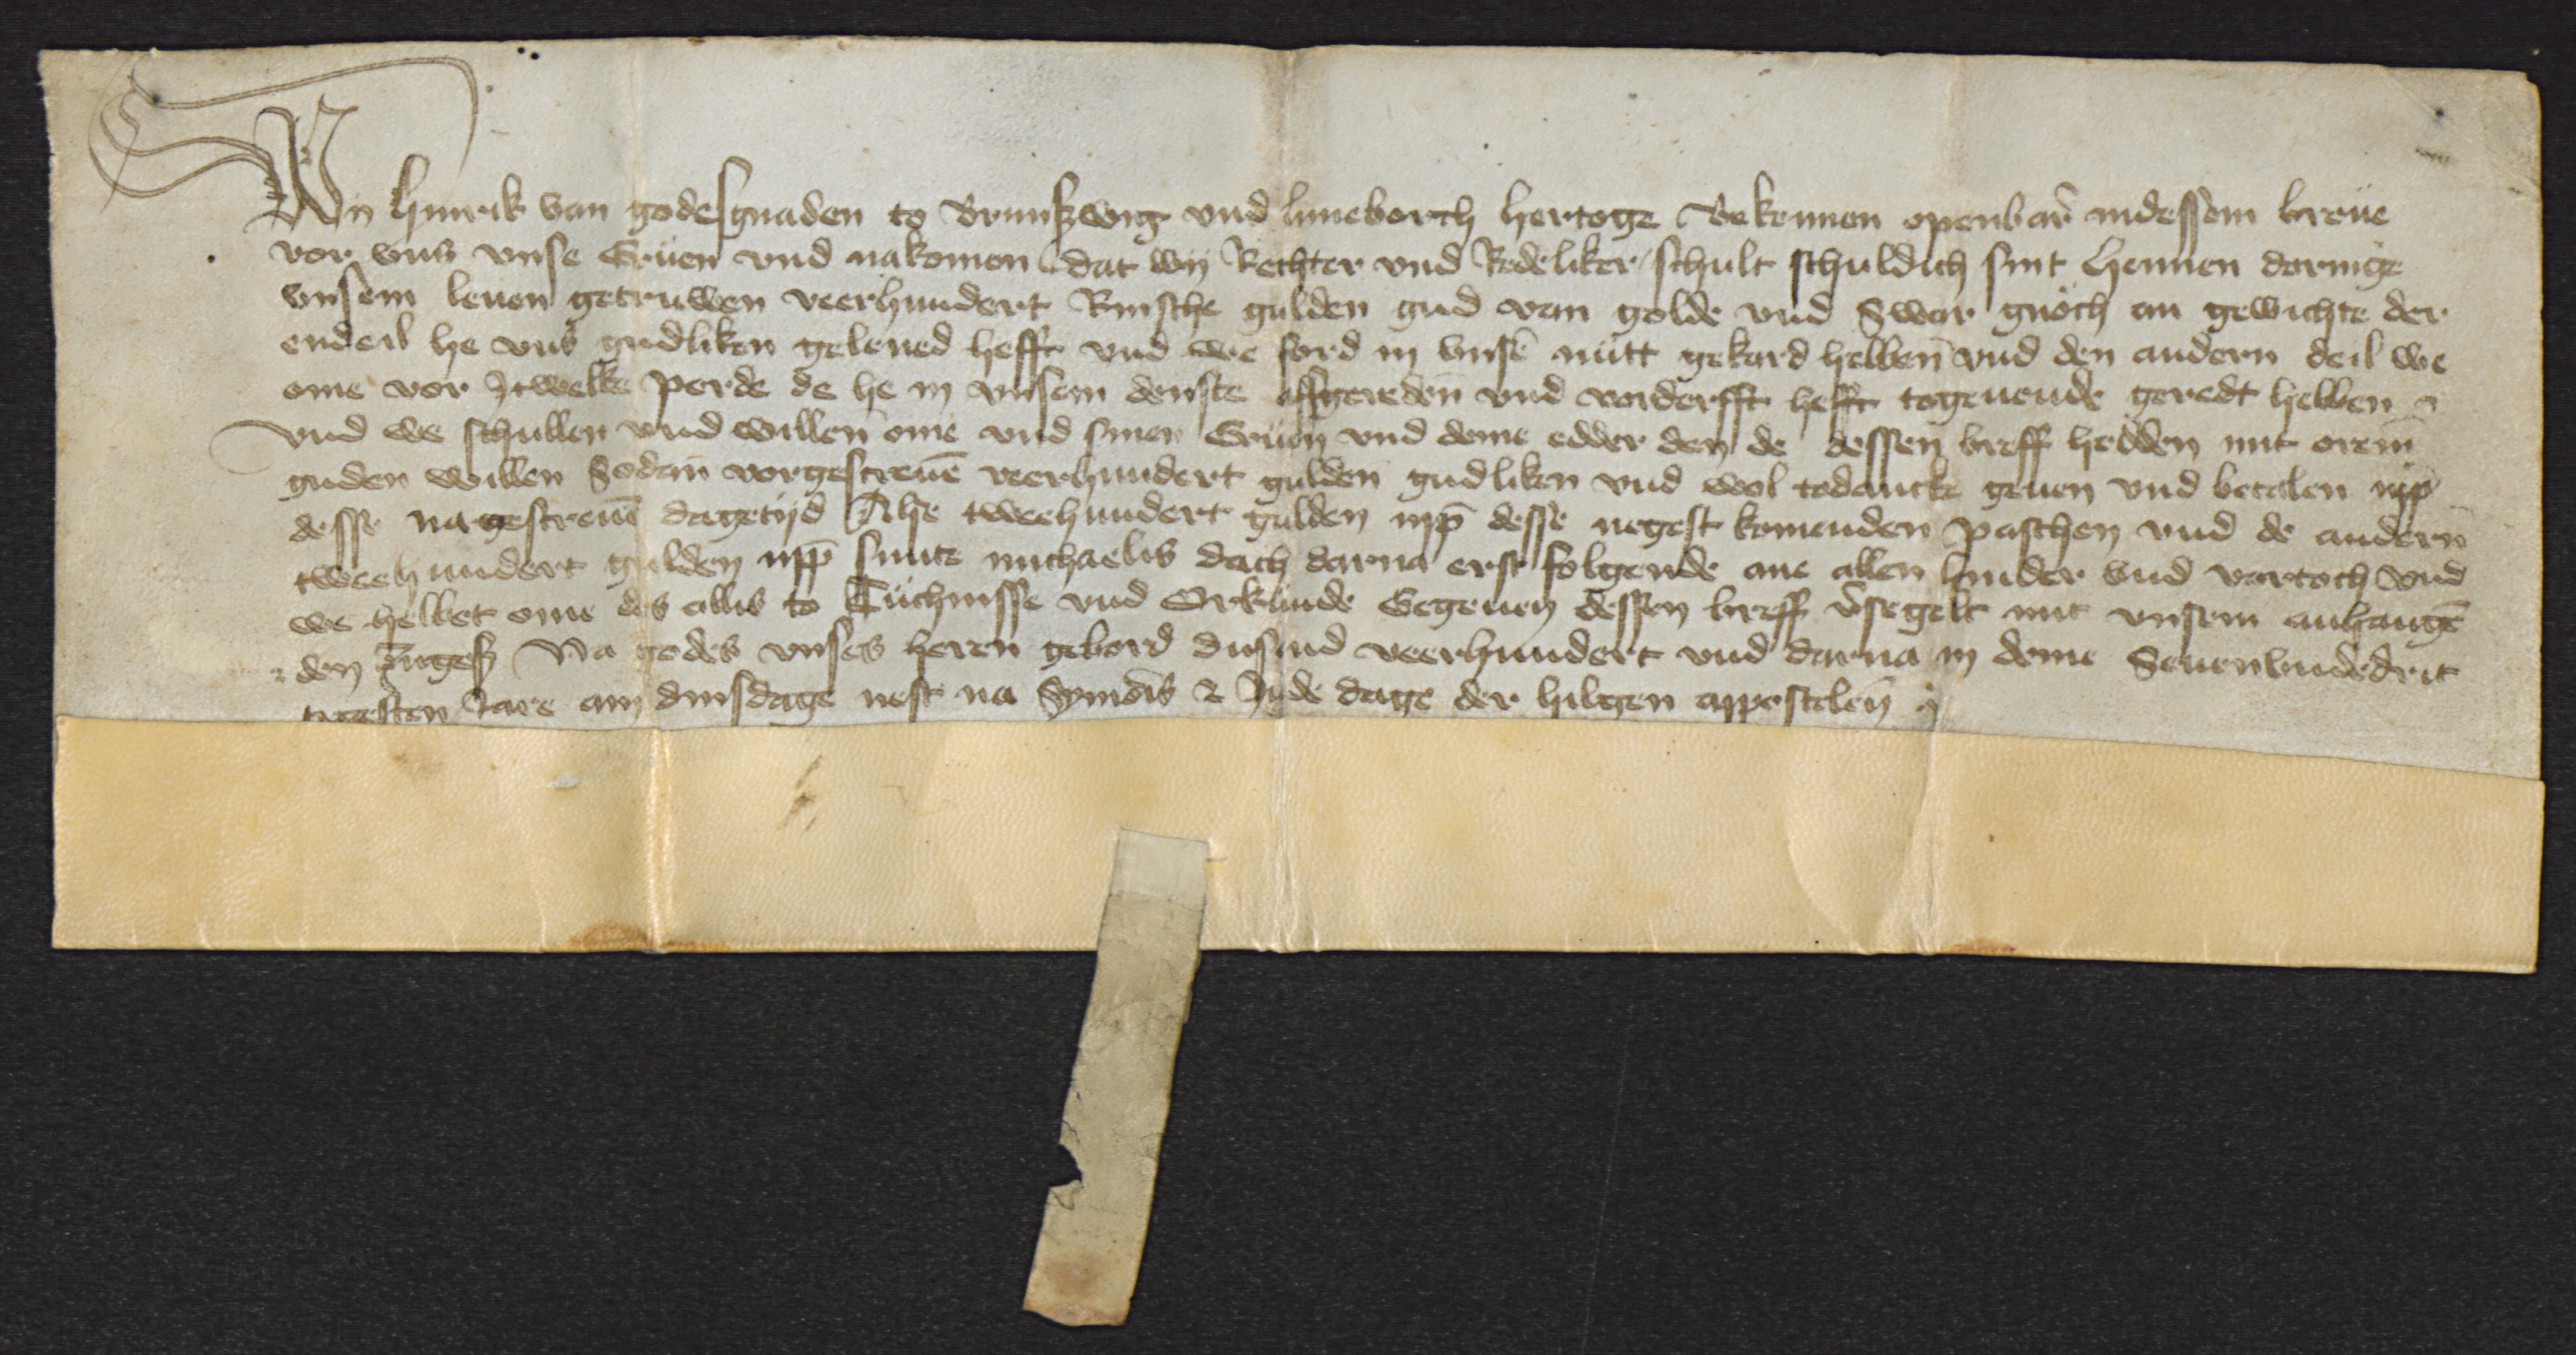 Wy Hinrik van godes gnaden to Brunszwig vnd luneborch Hertoge Bekennen openbar indessem breue
vor vns vnse Eruen vnd nakomen dat wy Rechter vnd Redeliker schult schuldich sint Hennen dorninge
vnsem leuen getruwen veerhundert Rinsche gulden gud van golde vnd Swar gnoch an gewichte der
endeil he vns gudliken gelened hefft vnd we ford in vnse nutt gekard hebben vnd den andern deil we
ome vor Itwelke perde de he in vnsem denste affgereden vnd vorderfft hefft togeuende geredt hebben
vnd we schullen vnd willen ome vnd sinen Eruen vnd deme edder den de dessen breff hedden mit orem
guden willen Sodan vorgescreuē veerhundert gulden gudliken vnd wol todancke geuen vnd betalen vpp
desse nagescreuē dagetijd Alse tweehundert gulden vpp desse negest komenden paschen vnd de andern
tweehundert gulden vpp sunte michaelis dach darna erst folgende ane allen hinder vnd vortoch vnd
we hebbet ome des alles to Tuchnisse vnd Orkunde Gegeuen dessen breff v̄segelt mit vnsem anhangē
den Inges Na godes vnses heren gebord dusend veerhundert vnd darna in deme Seuenvndedrit
tigesten Jare am dinsdage nest na Symōis & Jude dage der hilgen appostelen